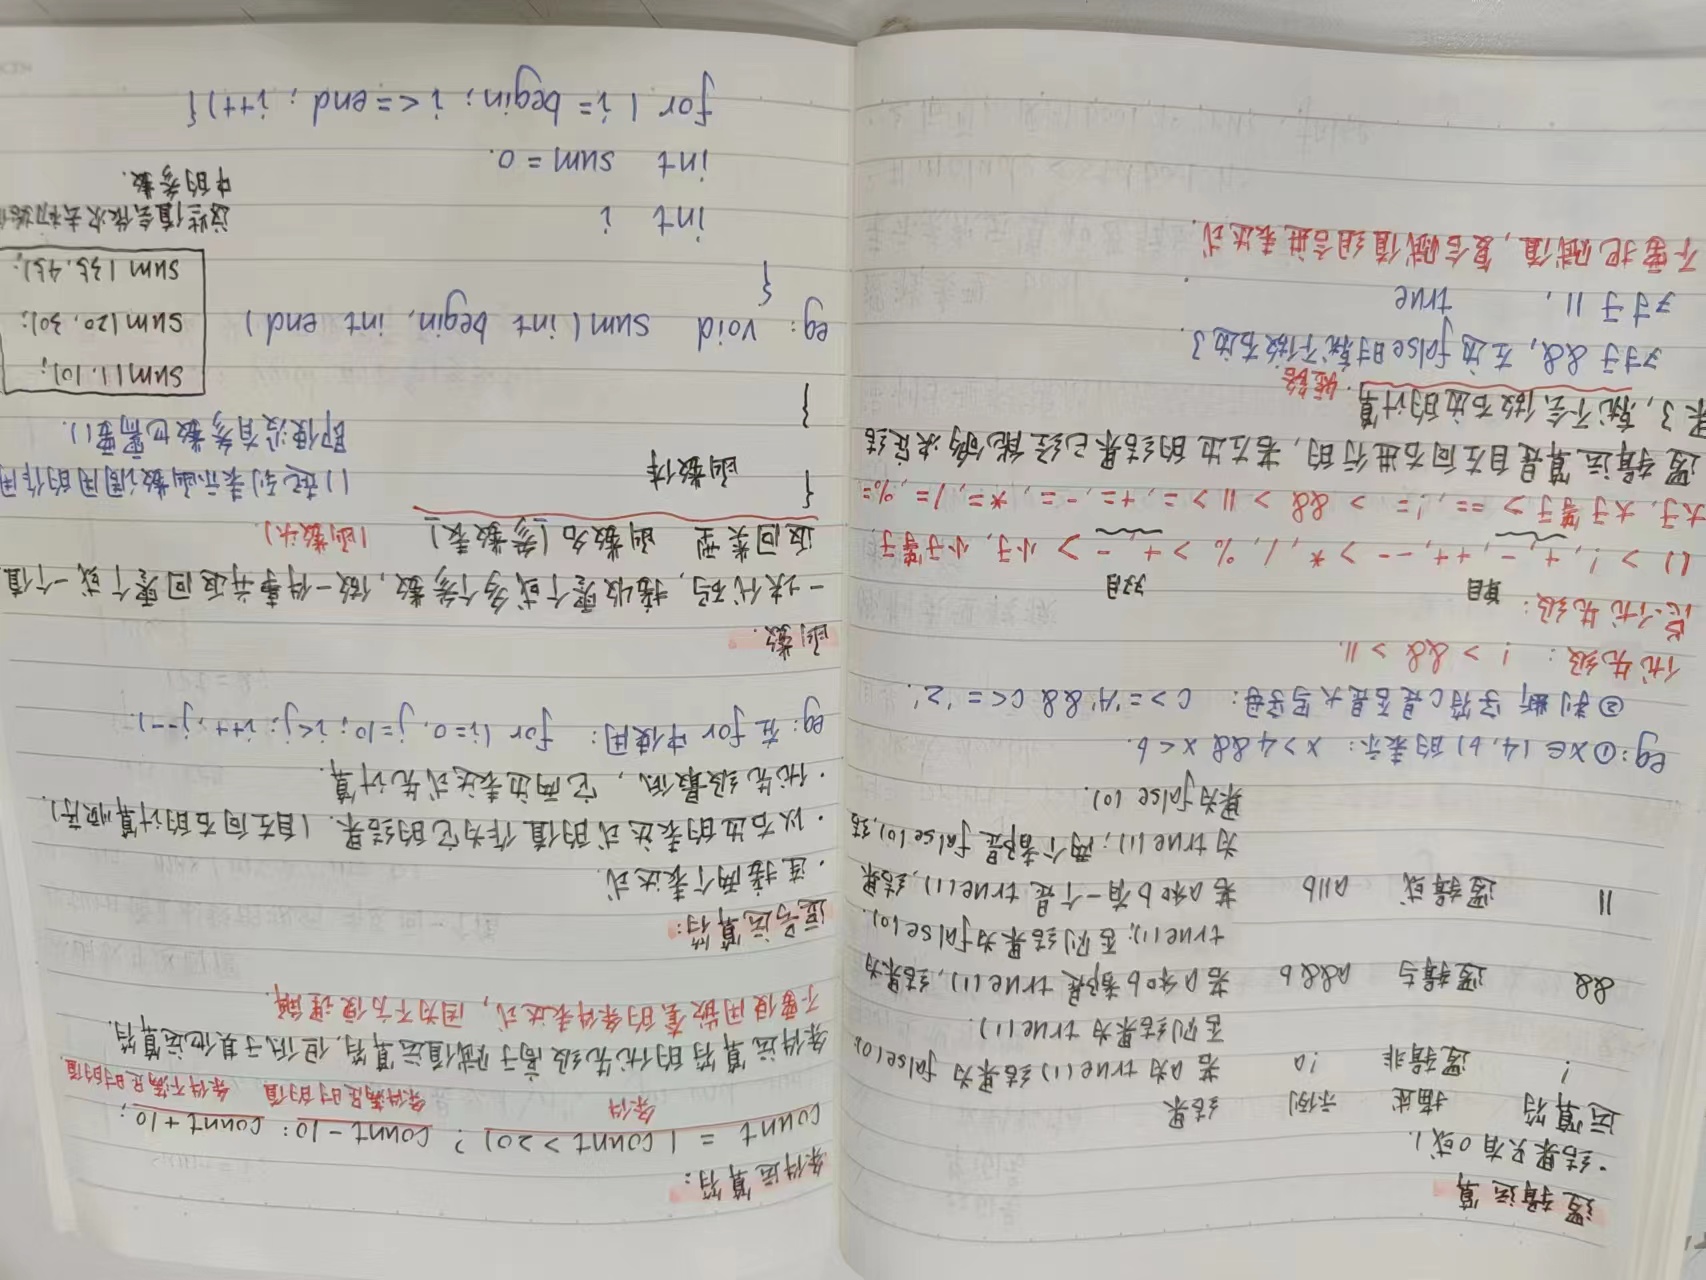 逻辑运算
·结果只有0或1.
运算符 描述 示例 结果
! 逻辑非 !a 若a为true(1)结果为false(0),
否则结果为true(1).
&& 逻辑与 a&&b 若a和b都是true(1),结果为
true(1);否则结果为false(0).
|| 逻辑或 a||b 若a和b有一个是true(1),结果
为true(1);两个都是false(0),结
果为false(0).
eg:①x∈(4,b)的表示: x>4&&x<b.
②判断字符c是否是大写字母: c>='A'&&c<='Z'.
优先级: ! > && > ||.
总优先级:
单目 双目
() > !,+,-,++,-- > *,/,% > +,- > 小于,小于等于
大于,大于等于 > ==,!= > && > || > =,+=,-=,*=,/=,%=
逻辑运算是自左向右进行的,若左边的结果已经能够决定结
果了,就不会做右边的计算. 短路
对于&&,左边false时就不做右边了
对于||, true
不要把赋值,复合赋值组合进表达式.
条件运算符:
count = (count>20) ? count-10: count+10;
条件 条件满足时的值 条件不满足时的值
条件运算符的优先级高于赋值运算符,但低于其他运算符.
不要使用嵌套的条件表达式,因为不方便理解.
逗号运算符:
·连接两个表达式.
·以右边的表达式的值作为它的结果.(自左向右的计算顺序)
·优先级最低,它两边表达式先计算.
eg:在for中使用: for (i=0,j=10;i<j;i++;j--).
函数.
一块代码,接收零个或多个参数,做一件事并返回零个或一个值
返回类型 函数名(参数表) (函数头).
{
函数体
}
()起到表示函数调用的作用
即使没有参数也需要().
eg: void sum(int begin, int end)
{
sum(1,10);
sum(20,30);
sum(35,45);
int i
int sum=0.
for(i=begin;i<=end;i++){
这些值会依次去初始
中的参数.